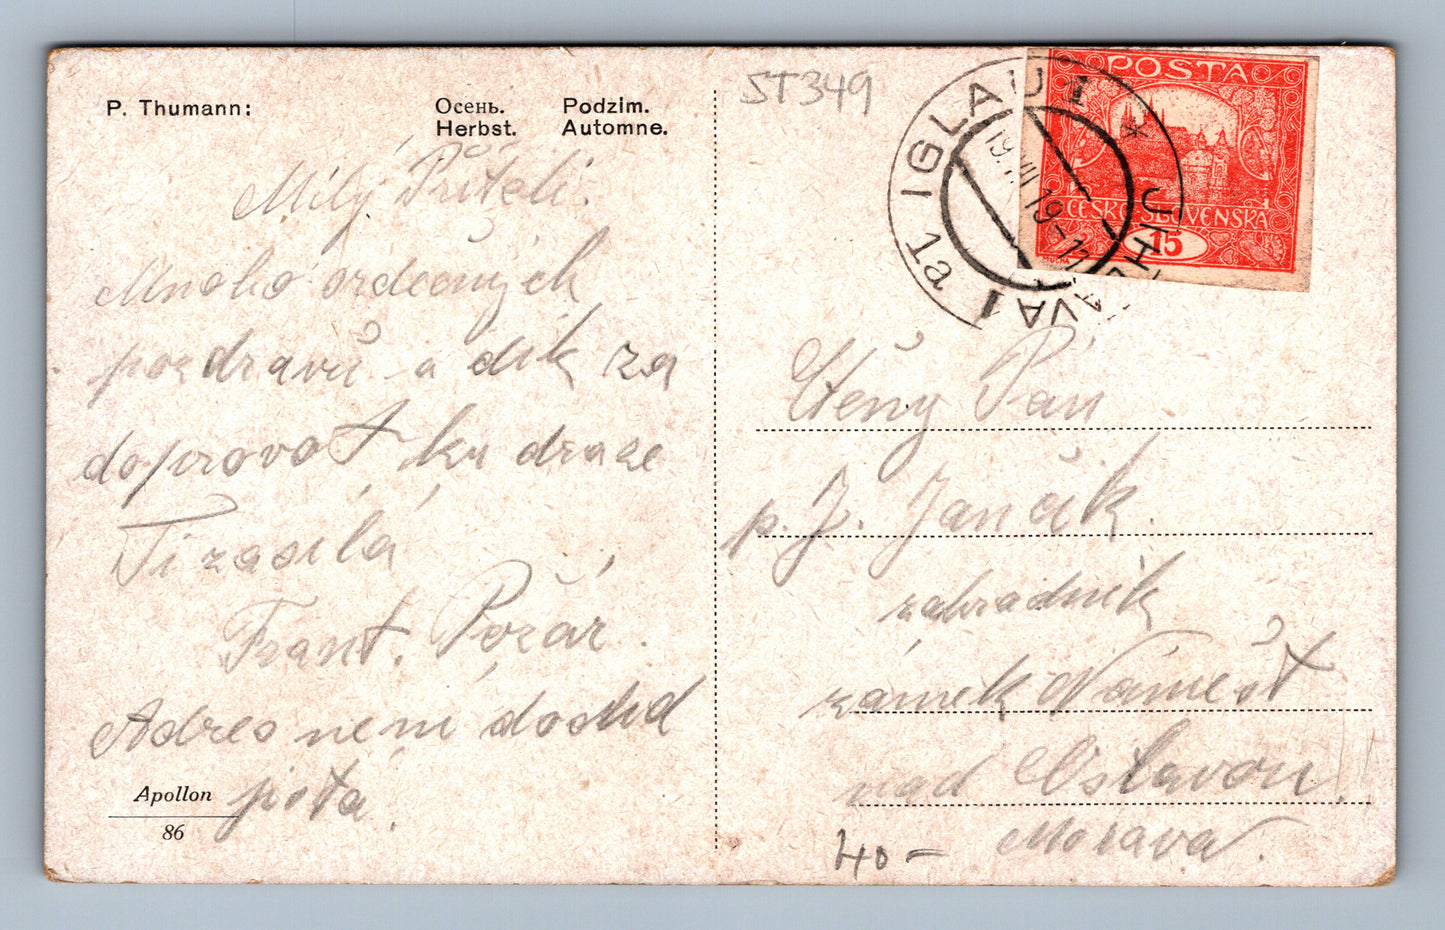 P. Thumann:
Осень. Podzim.
Herbst. Automne.
Milý Příteli.
Mnoho srdečných
pozdravů a dík za
doprovot ku draze
Ti zasílá
Frant. Požár.
Adres není dosud
jistá.
Apollon
86
ST349
IGLAU 1 * JIHLAVA 1 1a
19.VII 19-11
POSTA
ČESKO SLOVENSKÁ
15
Ctěný Pán
p. J. Jančík.
zahradník
zámek Náměšť
nad Oslavou
Morava.
40-